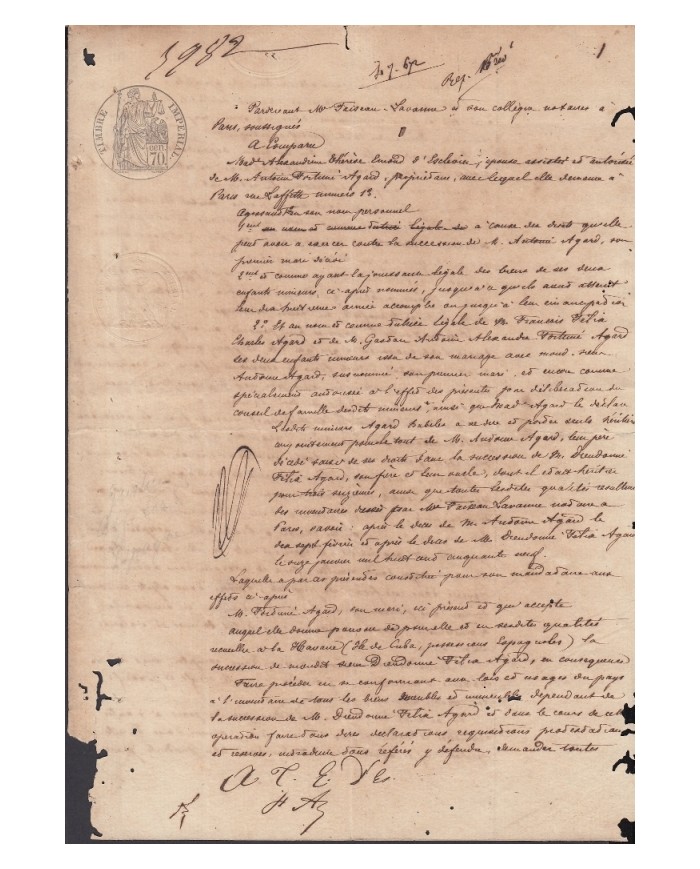 5982
1
TIMBRE IMPÉRIAL
70
Pardevant Me Faiseau Lavanne et son collègue notaires à
Paris, soussignés
A Comparu
Mad. Alexandrine Thérèse d'Esclavin, épouse assistée et autorisée
de M. Antoine Fortuné Agard, propriétaire, avec lequel elle demeure à
Paris rue Laffitte numéro
Agissant en son nom personnel
1ent à cause des droits qu'elle
peut avoir à exercer contre la succession de M. Antoine Agard, son
premier mari décédé
2ent et comme ayant la jouissance légale des biens de ses deux
enfants mineurs, ci après nommés, jusqu'à ce qu'ils aient atteint
leur dix huitième année accomplie ou jusqu'à leur émancipation
2° Et au nom et comme tutrice légale de M. François Félix
Charles Agard et de M. Gaston Antoine Alexandre Fortuné Agard
ses deux enfants mineurs issus de son mariage avec mond. sieur
Antoine Agard, susnommé, son premier mari, et encore comme
spécialement autorisée à l'effet des présentes par délibération du
conseil de famille desdits mineurs, ainsi que Mad. Agard le déclare
Lesdits mineurs Agard habiles à se dire et porter seuls héritiers
conjointement pour le tout de M. Antoine Agard, leur père
décédé saisi de ses droits dans la succession de M. Dieudonné
Félix Agard, son frère et leur oncle, dont il était héritier
pour trois seizièmes, ainsi que toutes lesdites qualités résultent
des inventaires dressés par Me Faiseau Lavanne notaire à
Paris, savoir: après le décès de M. Antoine Agard le
dix sept février et après le décès de M. Dieudonné Félix Agard
le onze janvier mil huit cent cinquante neuf.
Laquelle a par ces présentes constitué pour son mandataire aux
effets ci-après
M. Fortuné Agard, son mari, ici présent et qui accepte
auquel elle donne pouvoir de pour elle et en sesdites qualités
recueillir à la Havane (Ile de Cuba, possessions Espagnoles) la
succession de mondit sieur Dieudonné Félix Agard, en conséquence
Faire procéder en se conformant aux lois et usages du pays
à l'inventaire de tous les biens meubles et immeubles dépendant de
la succession de M. Dieudonné Félix Agard et dans le cours de cette
opération faire tous dires déclarations, réquisitions protestations
et réserves, introduire tous référés, y défendre, demander toutes
A. T. E. D'Es.
F A